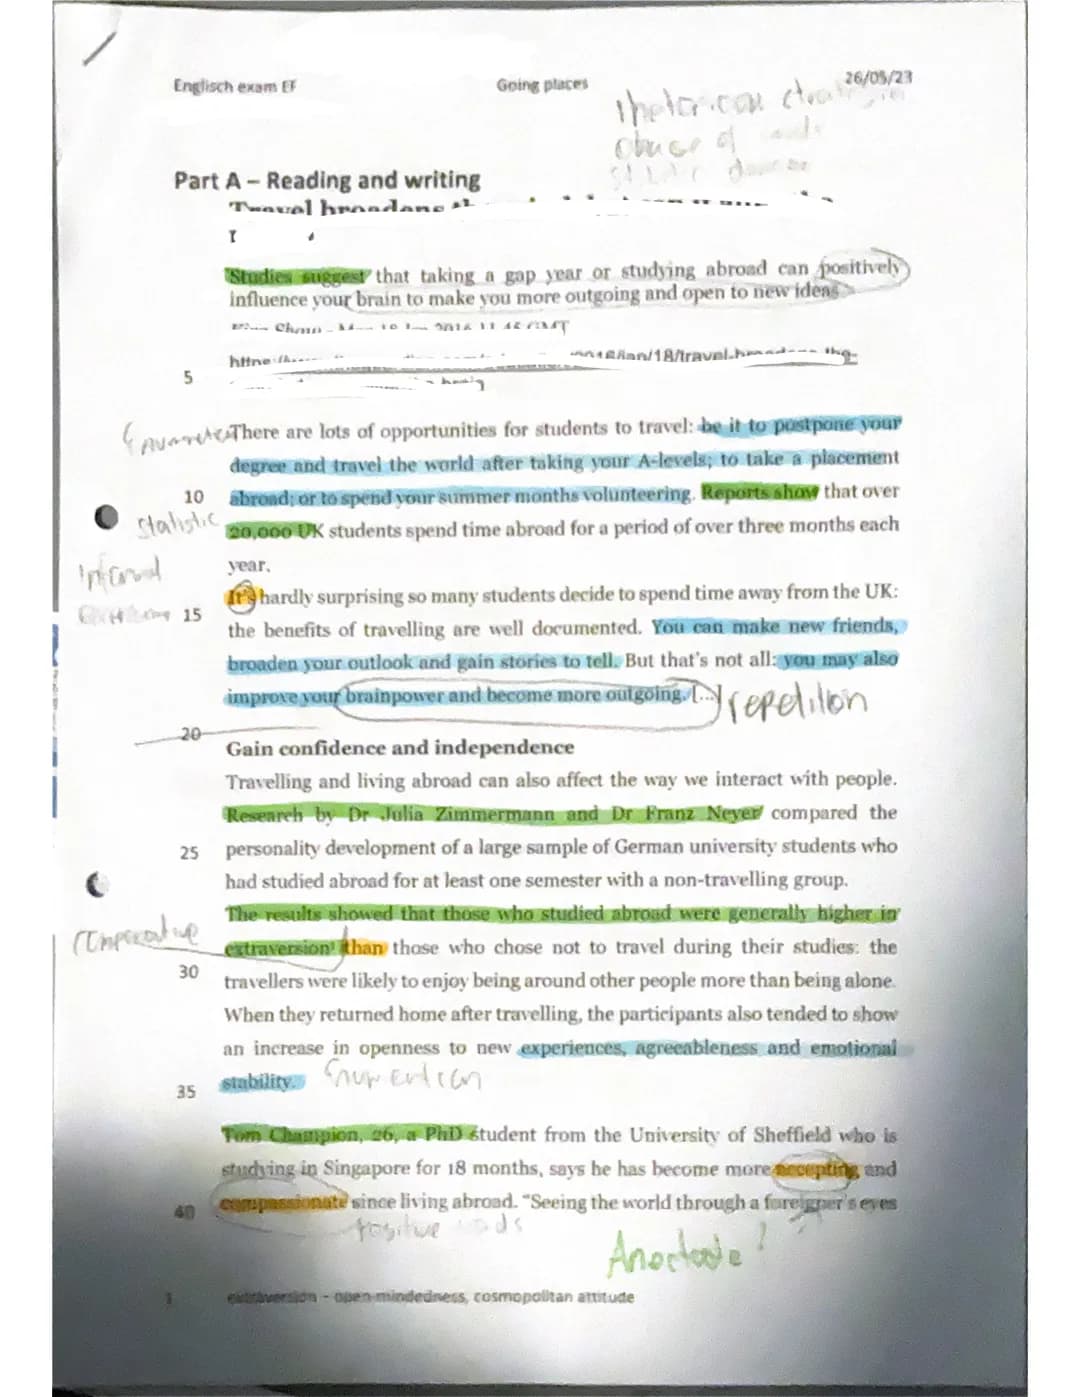 Englisch exam EF
Going places
26/05/23
Part A – Reading and writing
Studies suggest that taking a gap year or studying abroad can positively
influence your brain to make you more outgoing and open to new ideas
5
There are lots of opportunities for students to travel: be it to postpone your
degree and travel the world after taking your A-levels; to take a placement
10 abroad; or to spend your summer months volunteering. Reports show that over
statistic
20,000 UK students spend time abroad for a period of over three months each
year.
It's hardly surprising so many students decide to spend time away from the UK:
15
the benefits of travelling are well documented. You can make new friends,
broaden your outlook and gain stories to tell. But that's not all: you may also
improve your brainpower and become more outgoing. [...]
repetition
20
Gain confidence and independence
Travelling and living abroad can also affect the way we interact with people.
Research by Dr Julia Zimmermann and Dr Franz Neyer compared the
25 personality development of a large sample of German university students who
had studied abroad for at least one semester with a non-travelling group.
The results showed that those who studied abroad were generally higher in
extraversion¹ than those who chose not to travel during their studies: the
30
travellers were likely to enjoy being around other people more than being alone.
When they returned home after travelling, the participants also tended to show
an increase in openness to new experiences, agreeableness and emotional
35 stability.
Tom Champion, 26, a PhD student from the University of Sheffield who is
studying in Singapore for 18 months, says he has become more accepting and
40 compassionate since living abroad. "Seeing the world through a foreigner's eyes
positive
1 extraversion – open-mindedness, cosmopolitan attitude